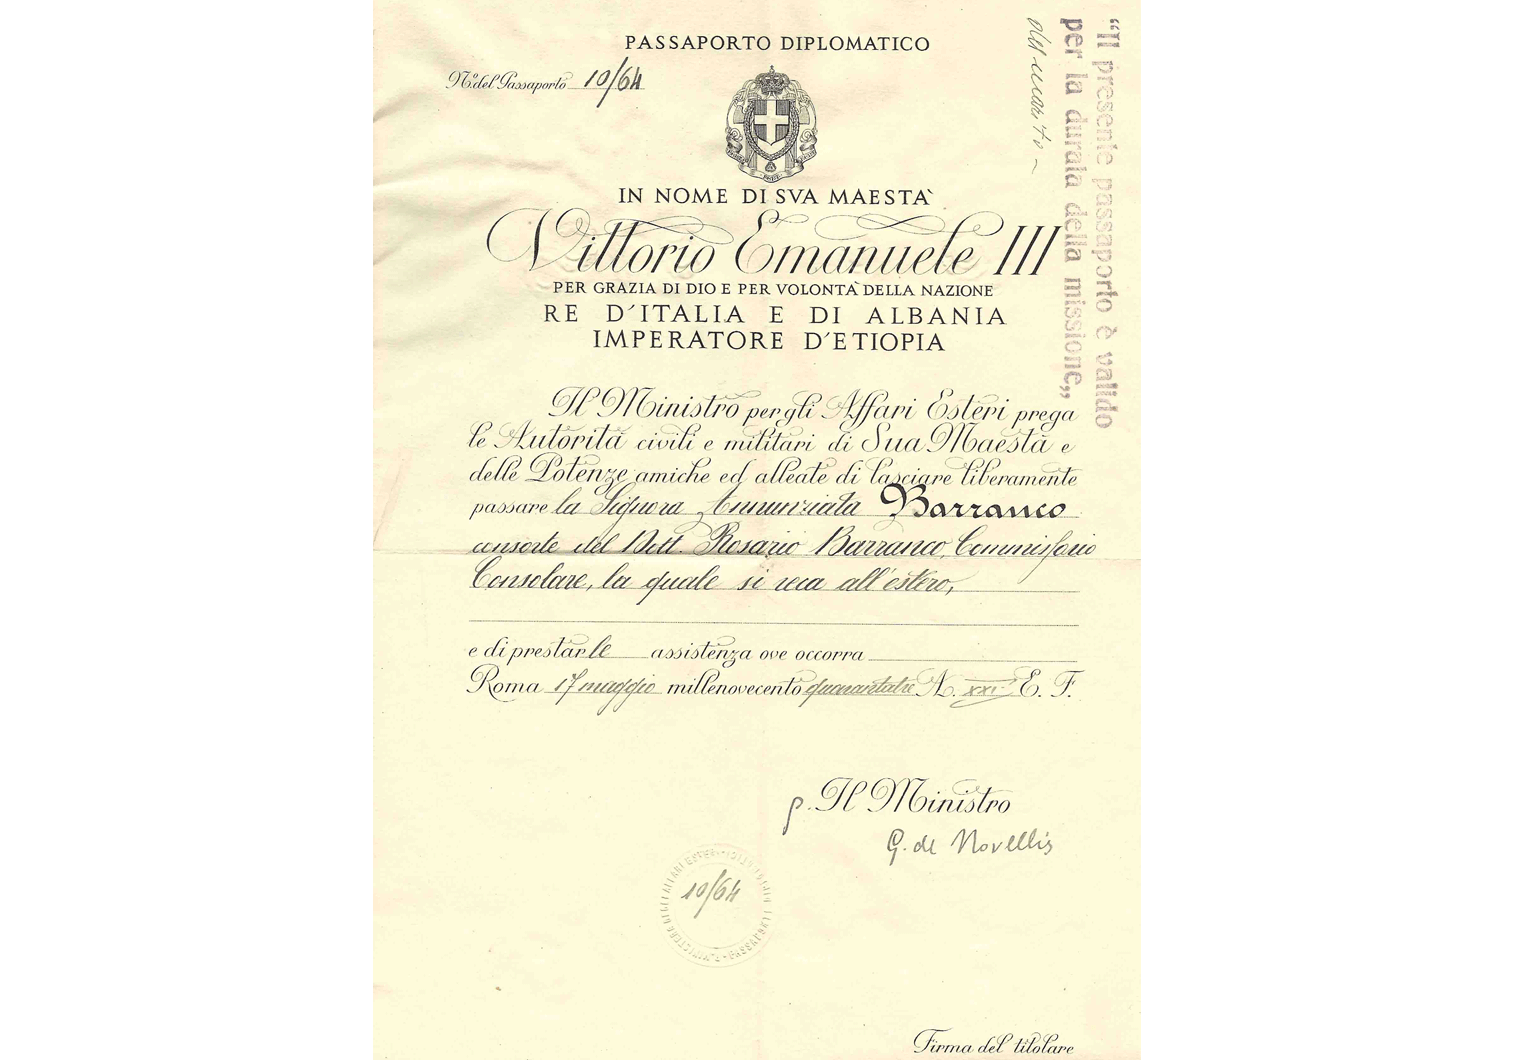 PASSAPORTO DIPLOMATICO
N.º del Passaporto 10/64
FERT
IN NOME DI SVA MAESTA'
Vittorio Emanuele III
PER GRAZIA DI DIO E PER VOLONTA' DELLA NAZIONE
RE D'ITALIA E DI ALBANIA
IMPERATORE D'ETIOPIA
Il Ministro per gli Affari Esteri prega
le Autorità civili e militari di Sua Maestà e
delle Potenze amiche ed alleate di lasciare liberamente
passare la Signora Annunziata Barranco
consorte del Dott. Rosario Barranco, Commissario
Consolare, la quale si reca all'estero,
e di prestarle assistenza ove occorra
Roma 17 maggio millenovecento quarantatre A. XXI E. F.
p. Il Ministro
G. de Novellis
10/64
Firma del titolare
„Il presente passaporto è valido
per la durata della missione„
del marito -